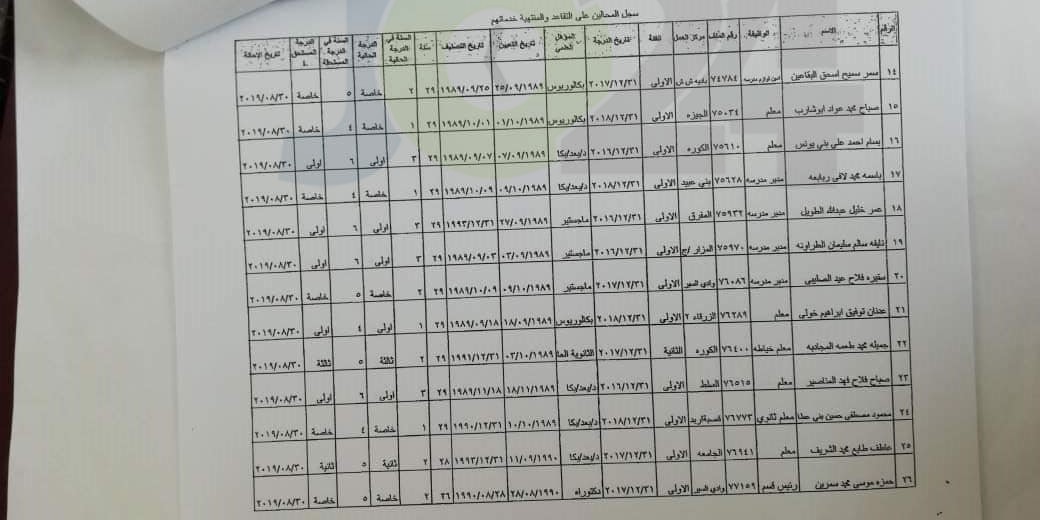 سجل المحالين على التقاعد والمنتهية خدماتهم
الرقم الاسم الوظيفة رقم الملف مركز العمل الفئة تاريخ الدرجة المؤهل العلمي تاريخ التعيين تاريخ التصنيف سنة السنة في الدرجة الحالية الدرجة الحالية السنة في الدرجة المستحقة الدرجة المستحق تاريخ الاحالة
١٤ سمر سميح اسحق البقاعين ٧٤٧٨٤ الاولى ٢٠١٧/١٢/٣١ بكالوريوس ٢٥/٠٩/١٩٨٩ ١٩٨٩/٠٩/٢٥ ٢٩ ٢ خاصة ٥ خاصة ٢٠١٩/٠٨/٣٠
١٥ صباح محمد عواد ابوشارب معلم ٧٥٠٣٤ الجيزه الاولى ٢٠١٨/١٢/٣١ بكالوريوس ٠١/١٠/١٩٨٩ ١٩٨٩/١٠/٠١ ٢٩ ١ خاصة ٤ خاصة ٢٠١٩/٠٨/٣٠
١٦ بسام احمد علي بني يونس معلم ٧٥٦١٠ الكوره الاولى ٢٠١٦/١٢/٣١ د/بعد/بكا ٠٧/٠٩/١٩٨٩ ١٩٨٩/٠٩/٠٧ ٢٩ ٣ اولى ٦ اولى ٢٠١٩/٠٨/٣٠
١٧ باسمه محمد لافي ربابعه مدير مدرسه ٧٥٦٢٨ بني عبيد الاولى ٢٠١٨/١٢/٣١ د/بعد/بكا ٠٩/١٠/١٩٨٩ ١٩٨٩/١٠/٠٩ ٢٩ ١ خاصة ٤ خاصة ٢٠١٩/٠٨/٣٠
١٨ عمر خليل عبدالله الطويل مدير مدرسه ٧٥٩٣٢ المفرق الاولى ٢٠١٦/١٢/٣١ ماجستير ٢٧/٠٩/١٩٨٩ ١٩٩٣/١٢/٣١ ٢٩ ٣ اولى ٦ اولى ٢٠١٩/٠٨/٣٠
١٩ نايفه سالم سليمان الطراونه مدير مدرسه ٧٥٩٧٠ المزار /ج الاولى ٢٠١٦/١٢/٣١ ماجستير ٠٣/٠٩/١٩٨٩ ١٩٨٩/٠٩/٠٣ ٢٩ ٣ اولى ٦ اولى ٢٠١٩/٠٨/٣٠
٢٠ سفيره فلاح عيد الصابيي مدير مدرسه ٧٦٠٨٦ وادي السير الاولى ٢٠١٧/١٢/٣١ ماجستير ٠٩/١٠/١٩٨٩ ١٩٨٩/١٠/٠٩ ٢٩ ٢ خاصة ٥ خاصة ٢٠١٩/٠٨/٣٠
٢١ عدنان توفيق ابراهيم خولي معلم ٧٦٢٨٩ الزرقاء ٢ الاولى ٢٠١٨/١٢/٣١ بكالوريوس ١٨/٠٩/١٩٨٩ ١٩٨٩/٠٩/١٨ ٢٩ ١ اولى ٤ اولى ٢٠١٩/٠٨/٣٠
٢٢ جميله محمد طعمه المجاديه معلم خياطه ٧٦٤٠٠ الكوره الثانية ٢٠١٧/١٢/٣١ الثانوية العا ٠٣/١٠/١٩٨٩ ١٩٩١/١٢/٣١ ٢٩ ٢ ثالثة ٥ ثالثة ٢٠١٩/٠٨/٣٠
٢٣ صباح فلاح فهد المناصير معلم ٧٦٥١٥ السلط الاولى ٢٠١٦/١٢/٣١ د/بعد/بكا ١٨/١١/١٩٨٩ ١٩٨٩/١١/١٨ ٢٩ ٣ اولى ٦ اولى ٢٠١٩/٠٨/٣٠
٢٤ محمود مصطفى حسين بني عطا معلم ثانوي ٧٦٧٧٣ قصبةاربد الاولى ٢٠١٨/١٢/٣١ د/بعد/بكا ١٠/١٠/١٩٨٩ ١٩٩٠/١٢/٣١ ٢٩ ١ خاصة ٤ خاصة ٢٠١٩/٠٨/٣٠
٢٥ عاطف طايع محمد الشريف معلم ٧٦٩٤١ الجامعه الاولى ٢٠١٧/١٢/٣١ د/بعد/بكا ١١/٠٩/١٩٩٠ ١٩٩٣/١٢/٣١ ٢٨ ٢ ثانية ٥ ثانية ٢٠١٩/٠٨/٣٠
٢٦ حمزه موسى محمد سمرين رئيس قسم ٧٧١٥٩ وادي السير الاولى ٢٠١٧/١٢/٣١ دكتوراه ٢٨/٠٨/١٩٩٠ ١٩٩٠/٠٨/٢٨ ٢٦ ٢ خاصة ٥ خاصة ٢٠١٩/٠٨/٣٠